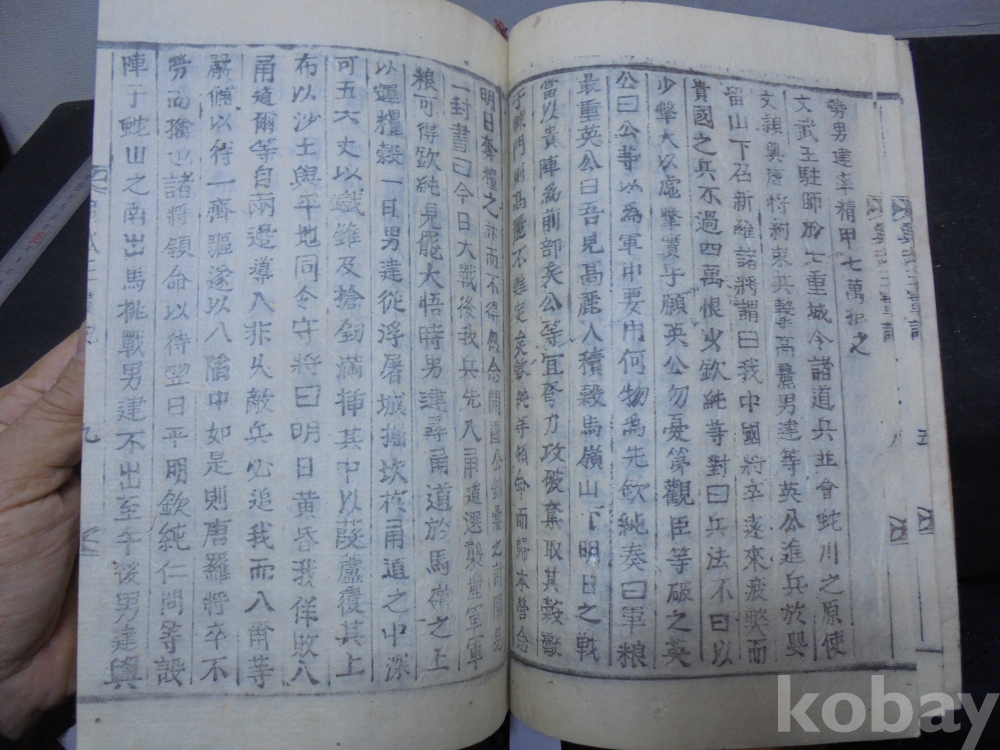 勞男建率精甲七萬拒之
文武王駐師於七重城令諸道兵並會蛇川之原使
文穎與唐將約束共擊高麗男建等英公進兵於嬰
留山下召新羅諸將謂曰我中國將卒遠來疲弊而
貴國之兵不過四萬恨少欽純等對曰兵法不曰以
少擊大以虛擊實乎願英公勿憂第觀臣等破之英
公曰公等以為軍中要用何物為先欽純奏曰軍粮
最重英公曰吾見高麗人積穀馬嶺山下明日之戰
當以貴陣為前部矣公等宜奮力攻破棄取其穀
明日奪糧之計而不得忽念開國公
一封書曰今日大戰後我兵先入甬道還襲
粮可得欽純見罷大悟時男建尋甬道於馬嶺之上
以運糧穀一日男建從浮屠城掘坎於甬道之中深
可五六丈以鐵錐及槍劒滿揷其中以葭蘆覆其上
布以沙土與平地同令守將曰明日黃昏我佯敗入
甬道爾等自兩邊導入非久敵兵必追我而入爾等
嚴備以待一齊驅逐以入陷中如是則唐羅將卒不
勞而擒也諸將領命以待翌日平明欽純仁問等設
陣于蛇山之南出馬挑戰男建不出至午後男建與
九
八
五
kobay